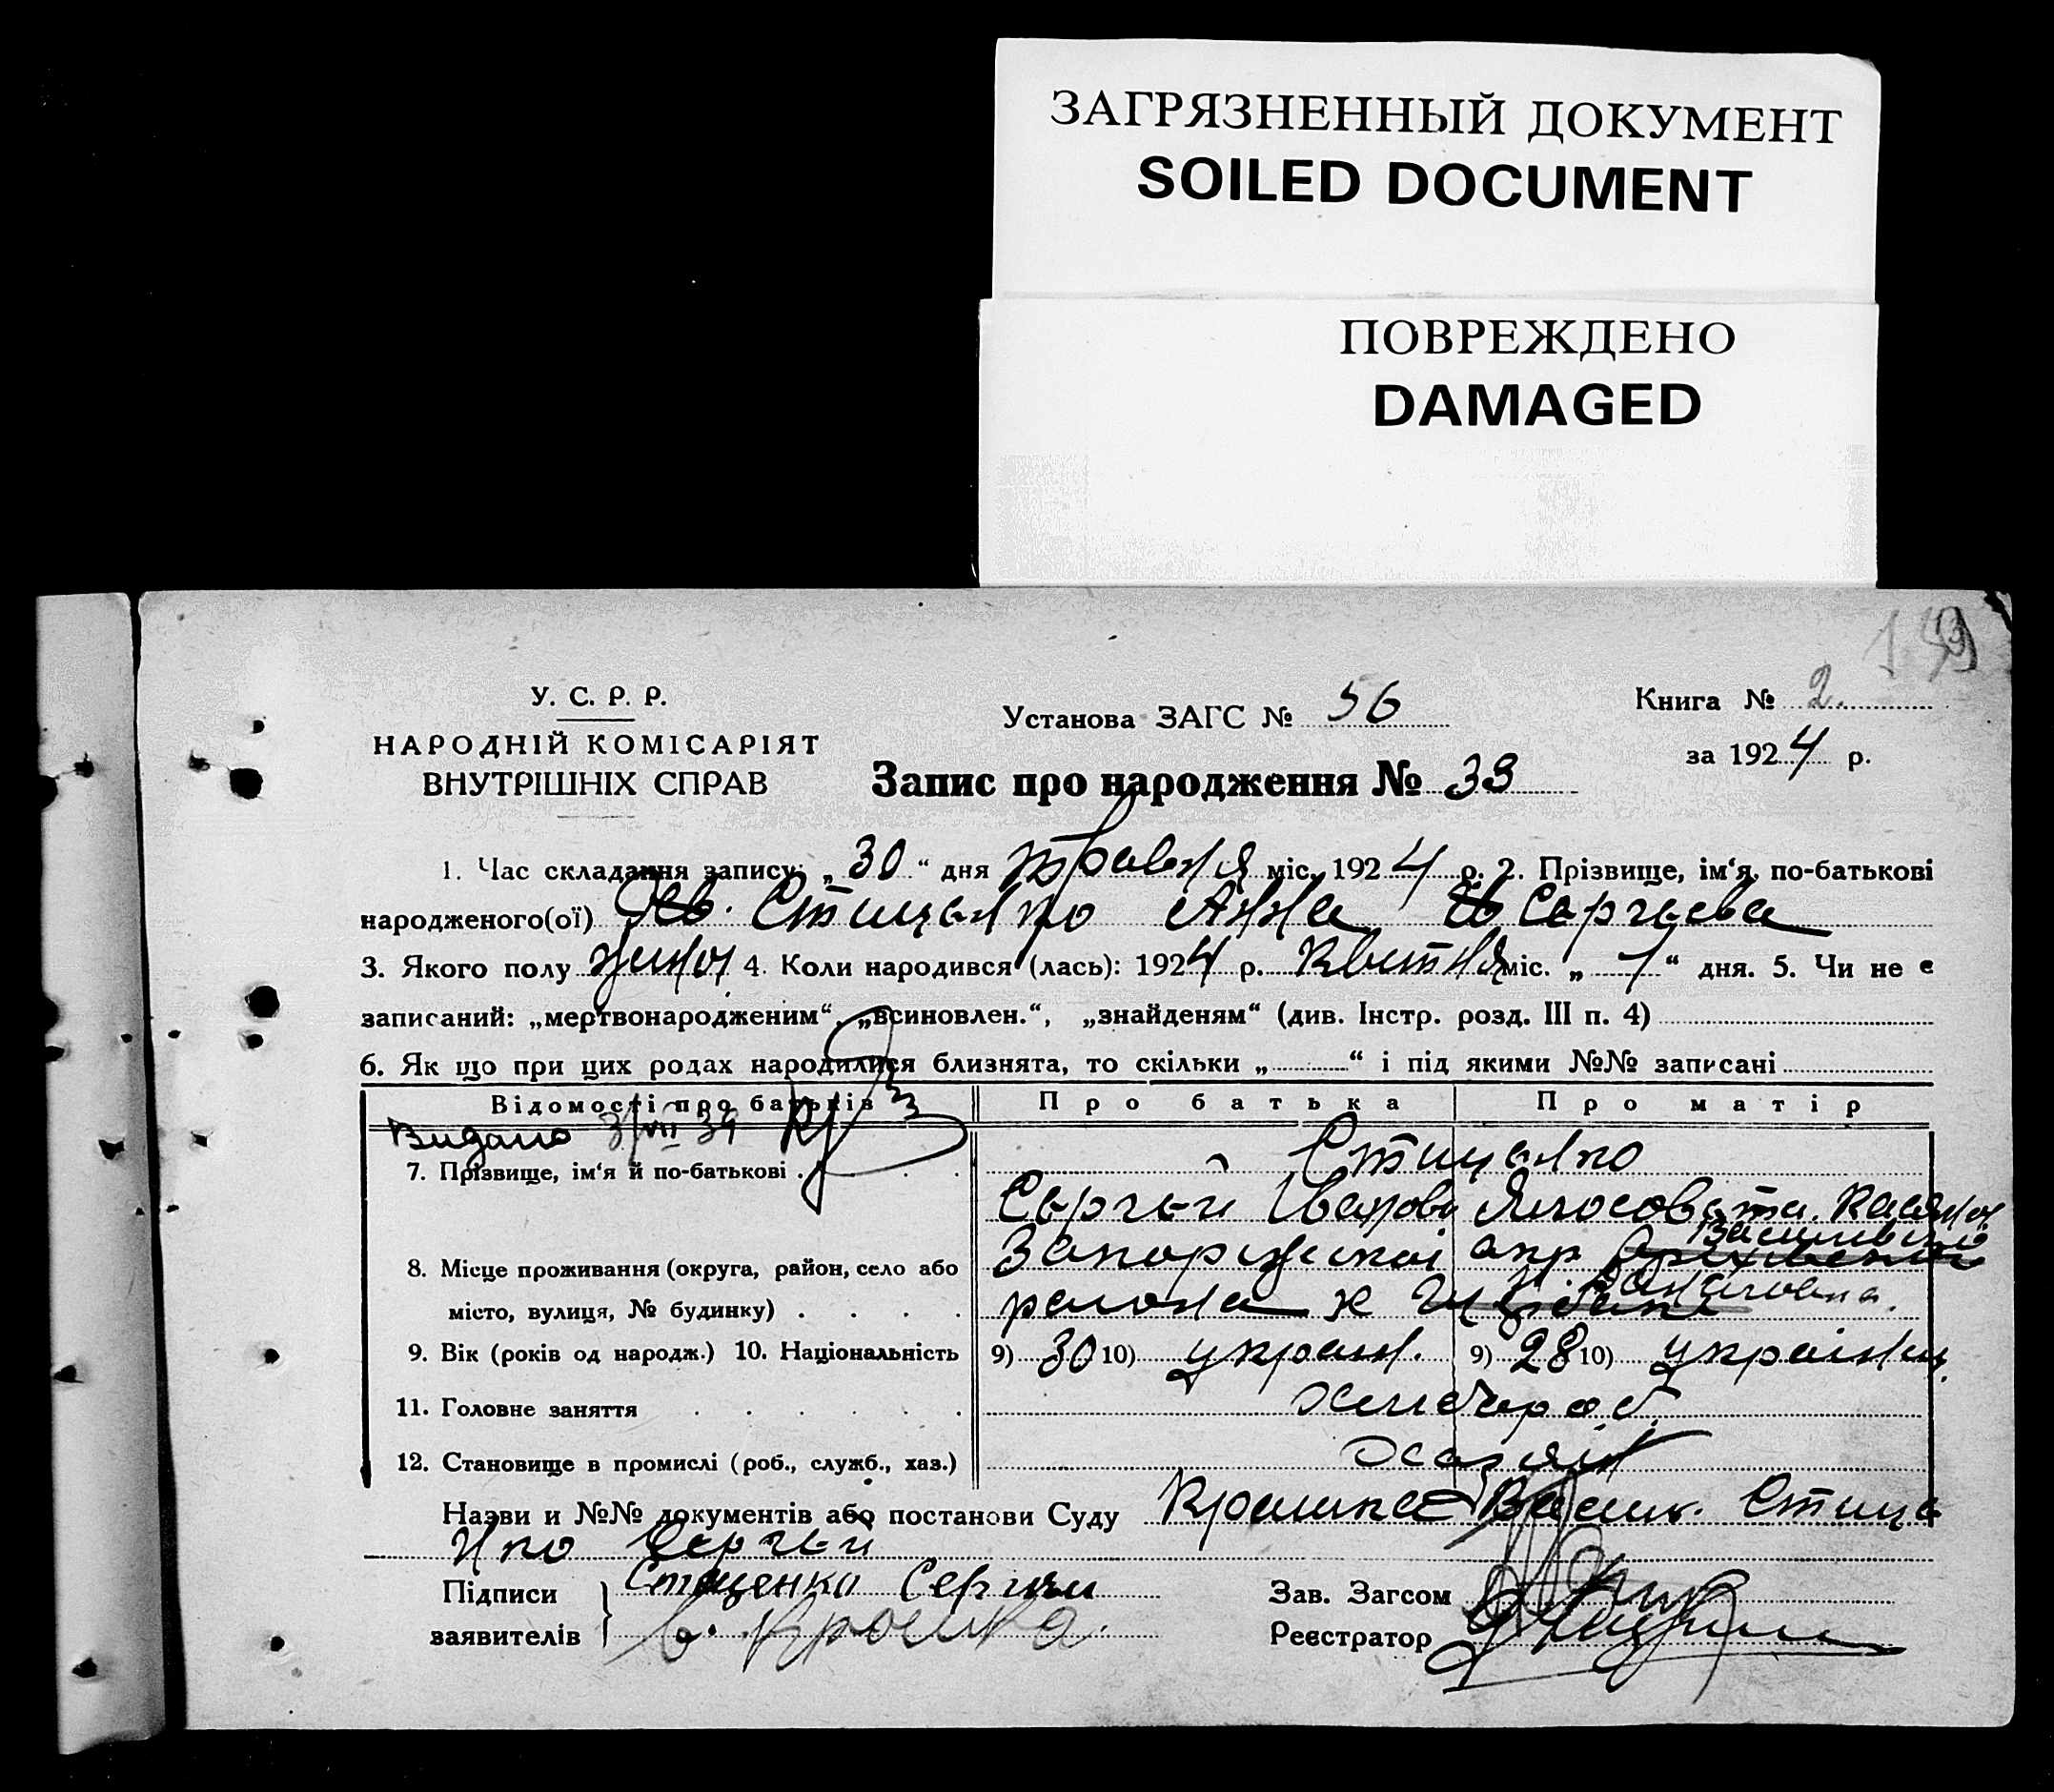 ЗАГРЯЗНЕННЫЙ ДОКУМЕНТ
SOILED DOCUMENT
ПОВРЕЖДЕНО
DAMAGED
У. С. Р. Р.
НАРОДНІЙ КОМІСАРІЯТ
ВНУТРІШНІХ СПРАВ
Установа ЗАГС № 56
Книга № 2.
за 1924 р.
Запис про народження № 33
1. Час складання запису: „30“ дня травня міс. 1924 р. 2. Прізвище, ім‘я, по-батькові
народженого(ої) Стицанко Анна Сергьева
3. Якого полу жіноч 4. Коли народився (лась): 1924 р. Квитня міс. „7“ дня. 5. Чи не є
записаний: „мертвонародженим“, „всиновлен.“, „знайденям“ (див. Інстр. розд. III п. 4)
6. Як що при цих родах народилися близнята, то скільки „ “ і під якими №№ записані
Відомості про батьків Про батька Про матір
Видано 3/VII 39
7. Прізвище, ім‘я й по-батькові . . . Стицанко
Сергьи Иванов
8. Місце проживання (округа, район, село або Запоржскоі окр Василивско
місто, вулиця, № будинку) . . . . района х
9. Вік (років од народж.) 10. Національність 9) 30 10) украін. 9) 28 10) украінц.
11. Головне заняття . . . . . . Хлибороб.
12. Становище в промислі (роб., служб., хаз.) Хазяін
Назви и №№ документів або постанови Суду Крошка Васил. Стица
нко Сергьи
Підписи Стаценко Сергии Зав. Загсом
заявителів В. Крошка. Реєстратор